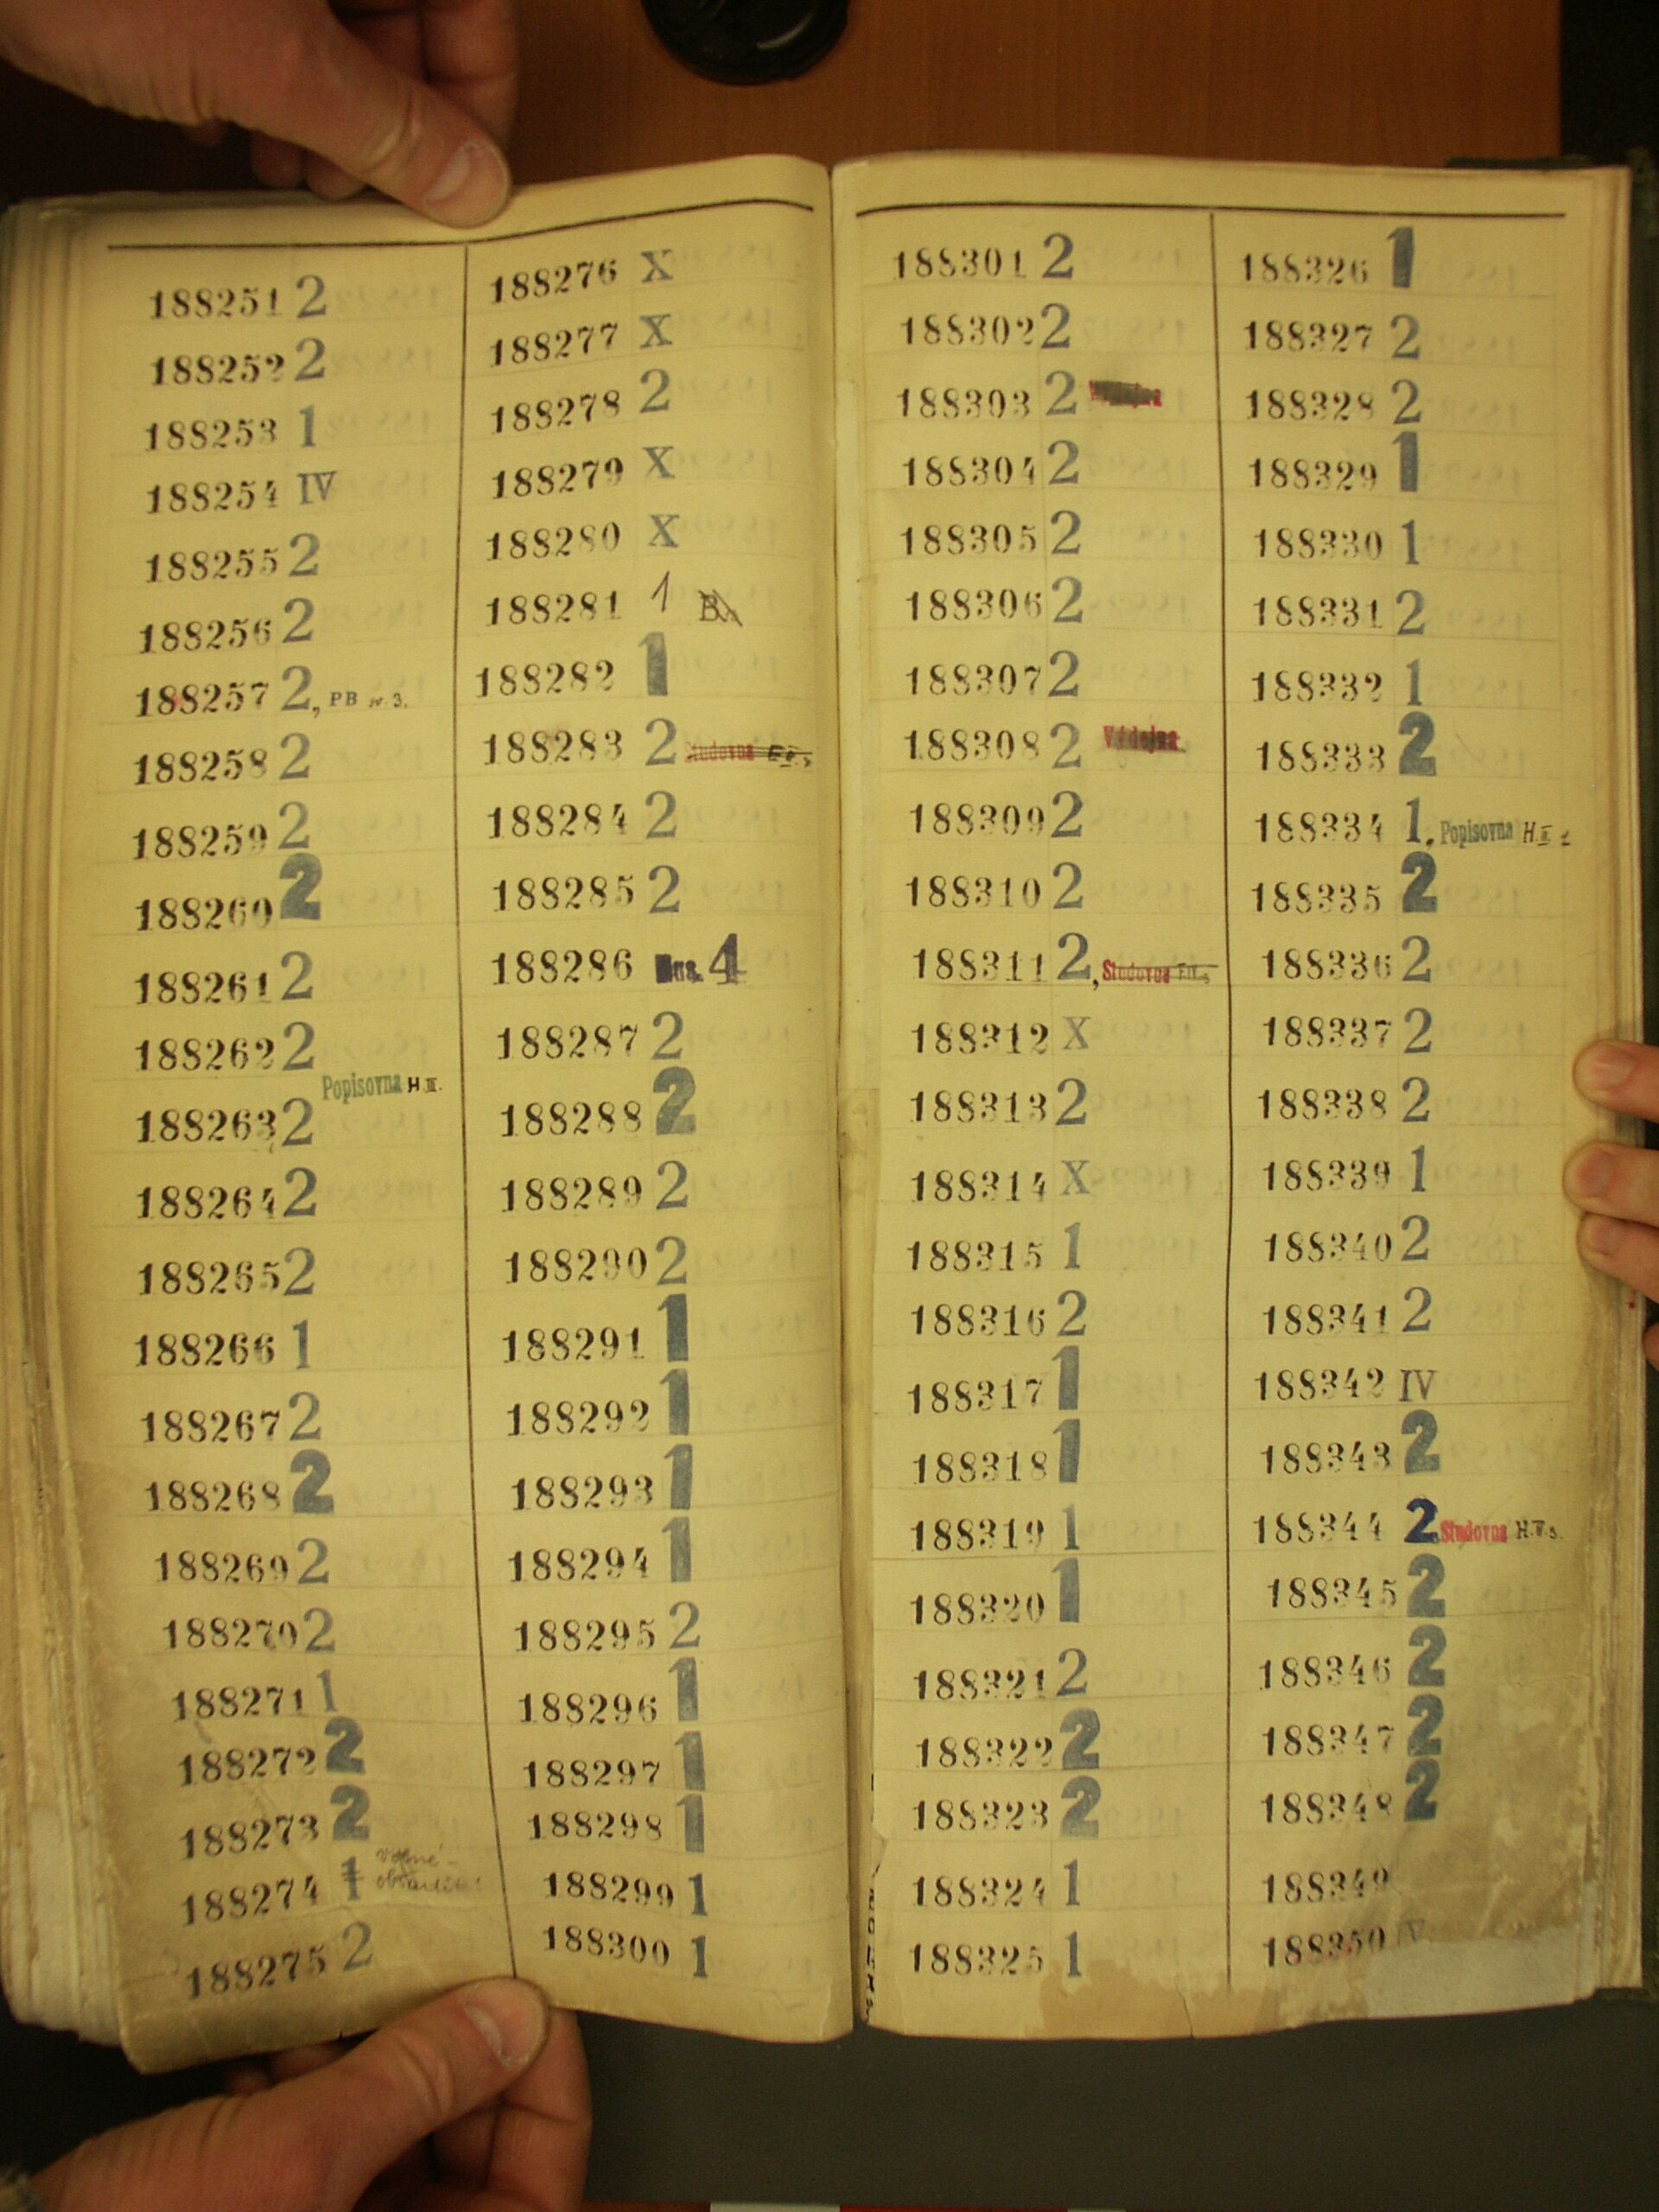 188251 2
188252 2
188253 1
188254 IV
188255 2
188256 2
188257 2, PB IV 3.
188258 2
188259 2
188260 2
188261 2
188262 2
Popisovna H.III.
188263 2
188264 2
188265 2
188266 1
188267 2
188268 2
188269 2
188270 2
188271 1
188272 2
188273 2
188274 1
188275 2
188276 X
188277 X
188278 2
188279 X
188280 X
188281 1 B.
188282 1
188283 2 Studovna
188284 2
188285 2
188286 4
188287 2
188288 2
188289 2
188290 2
188291 1
188292 1
188293 1
188294 1
188295 2
188296 1
188297 1
188298 1
188299 1
188300 1
188301 2
188302 2
188303 2
188304 2
188305 2
188306 2
188307 2
188308 2 Výdejna
188309 2
188310 2
188311 2, Studovna
188312 X
188313 2
188314 X
188315 1
188316 2
188317 1
188318 1
188319 1
188320 1
188321 2
188322 2
188323 2
188324 1
188325 1
188326 1
188327 2
188328 2
188329 1
188330 1
188331 2
188332 1
188333 2
188334 1, Popisovna H.II.
188335 2
188336 2
188337 2
188338 2
188339 1
188340 2
188341 2
188342 IV
188343 2
188344 2 Studovna
188345 2
188346 2
188347 2
188348 2
188349
188350 IV